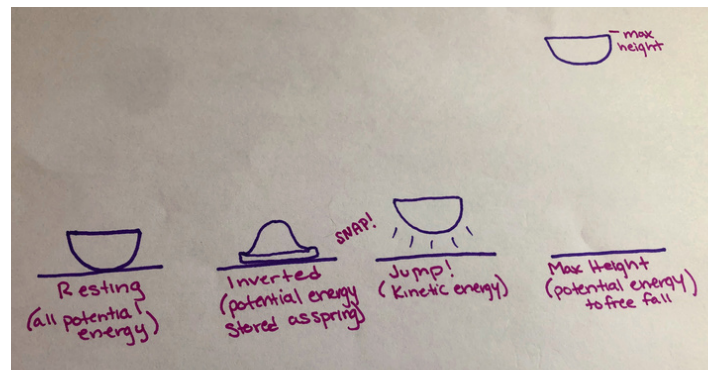 - max
height
SNAP!
Resting
(all potential
energy)
Inverted
(potential energy
stored as spring)
Jump!
(Kinetic energy)
Max Height
(potential energy)
to free fall